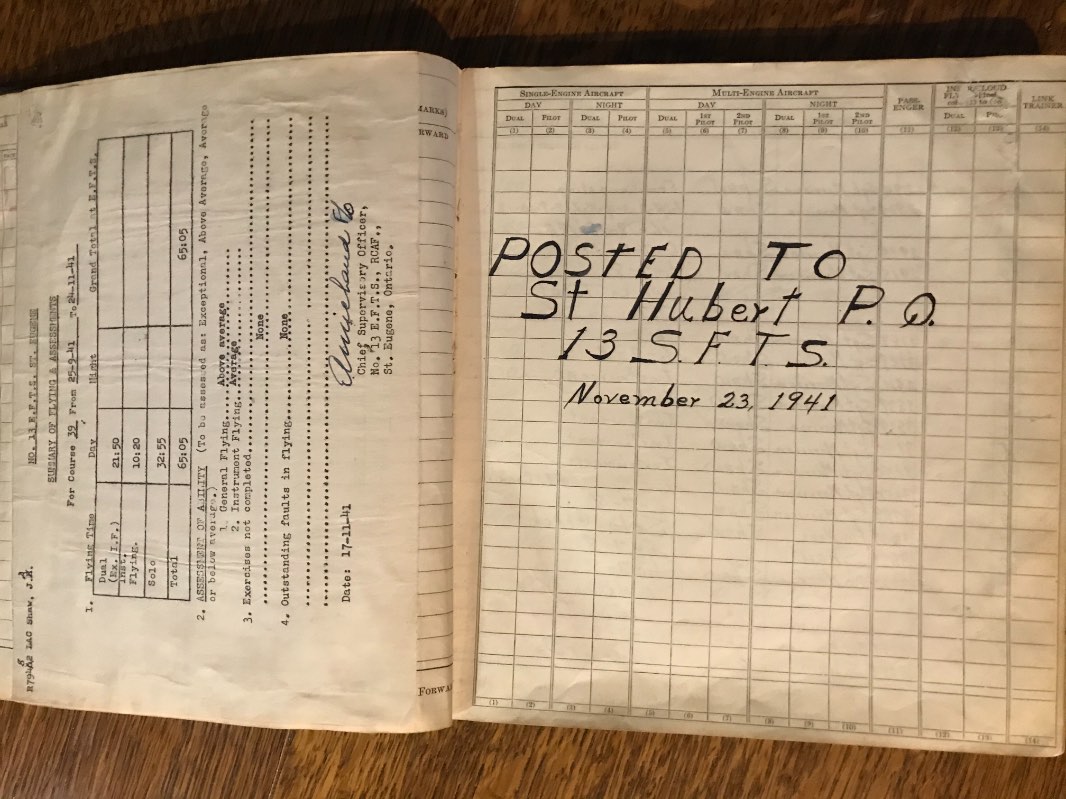 LAC Shaw, J.
NO. 13 E.F.T.S. ST. EUGENE
SUMMARY OF FLYING & ASSESSMENTS
For Course 39 From 25-9-41 To 24-11-41
1. Flying Time Day Night Grand Total at E.F.T.S.
Dual
(Ex. I.F.) 21:50
Inst.
Flying. 10:20
Solo 32:55
Total 65:05 65:05
2. ASSESSMENT OF ABILITY (To be assessed as: Exceptional, Above Average, Average
or below average.)
1. General Flying....Above average
2. Instrument Flying....Average
3. Exercises not completed....
None
4. Outstanding faults in flying....
None
Chief Supervisory Officer,
No. 13 E.F.T.S., RCAF.,
St. Eugene, Ontario.
Date: 17-11-41
MARKS)
RWARD
FORWA
SINGLE-ENGINE AIRCRAFT MULTI-ENGINE AIRCRAFT PASS-ENGER LINK TRAINER
DAY NIGHT DAY NIGHT
DUAL PILOT DUAL PILOT DUAL 1ST PILOT 2ND PILOT DUAL 1ST PILOT 2ND PILOT DUAL
(1) (2) (3) (4) (5) (6) (7) (8) (9) (10) (11) (12) (13) (14)
POSTED TO
St Hubert P.Q.
13 S.F.T.S.
November 23, 1941
(1) (2) (3) (4) (5) (6) (7) (8) (9) (10) (11) (12) (13) (14)